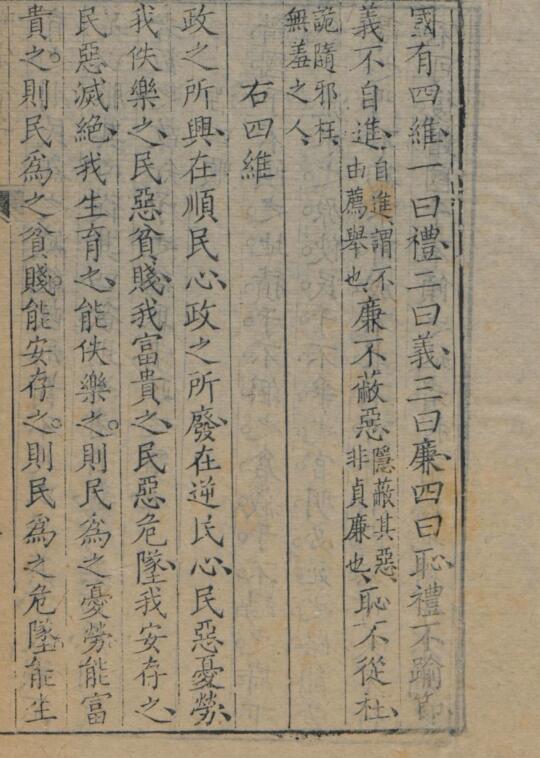 國有四維一曰禮二曰義三曰廉四曰恥禮不踰節
義不自進自進謂不由薦舉也廉不蔽惡隱蔽其惡非貞廉也恥不從枉
詭隨邪枉無羞之人
右四維
政之所興在順民心政之所廢在逆民心民惡憂勞
我佚樂之民惡貧賤我富貴之民惡危墜我安存之
民惡滅絶我生育之能佚樂之則民爲之憂勞能富
貴之則民爲之貧賤能安存之則民爲之危墜能生